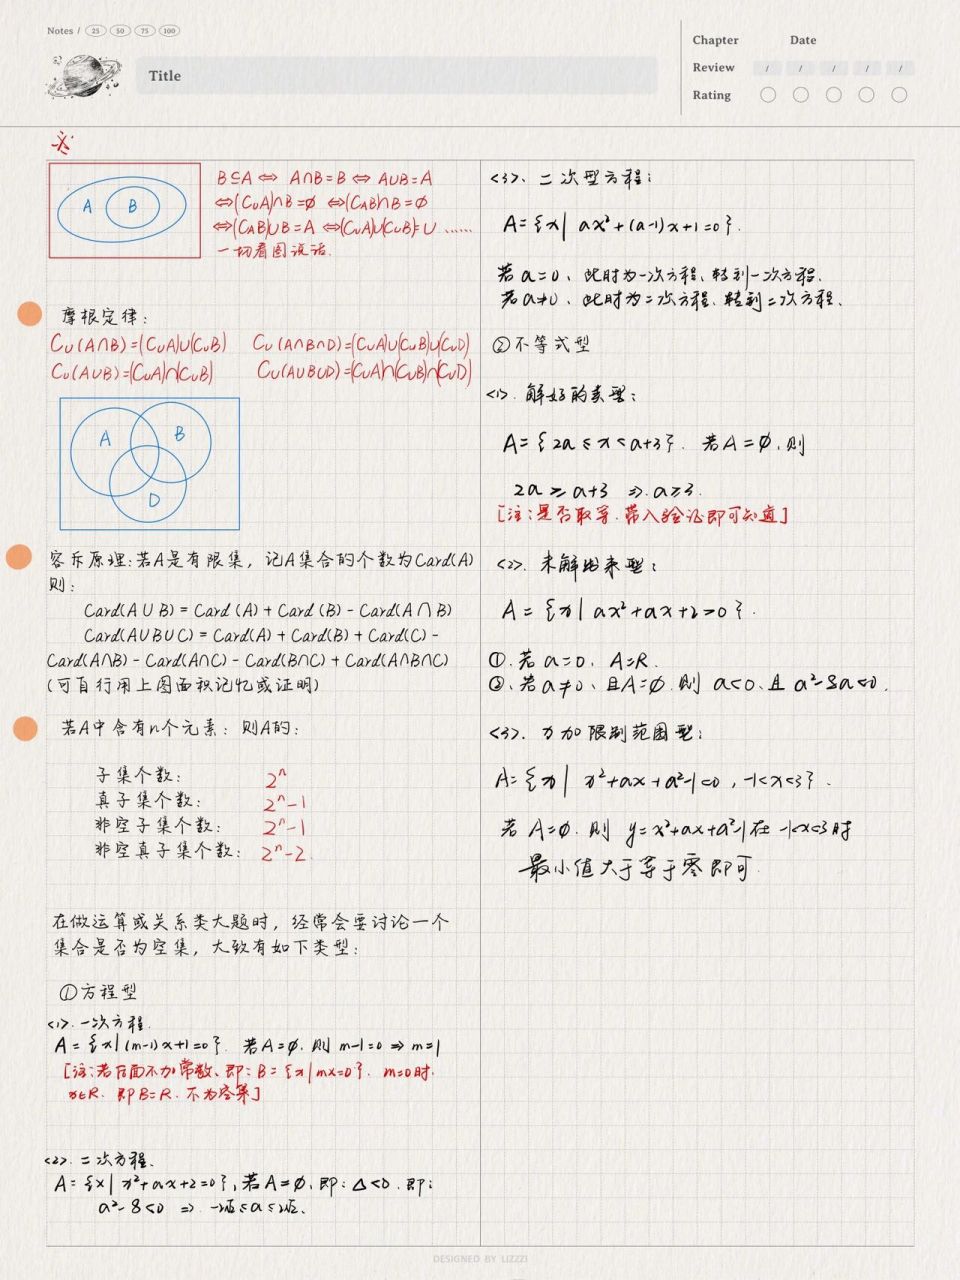 Notes / 25 50 75 100
Title
Chapter Date
Review / / / / /
Rating
A B
B⊆A ⇔ A∩B=B ⇔ A∪B=A
⇔(C∪A)∩B=∅ ⇔(CAB)∩B=∅
⇔(CAB)∪B=A ⇔(C∪A)∪(C∪B)=∪ ......
一切看图说话.
摩根定律:
C∪(A∩B)=(C∪A)∪(C∪B) C∪(A∩B∩D)=(C∪A)∪(C∪B)∪(C∪D)
C∪(A∪B)=(C∪A)∩(C∪B) C∪(A∪B∪D)=(C∪A)∩(C∪B)∩(C∪D)
A B
D
容斥原理:若A是有限集，记A集合的个数为Card(A)
则:
Card(A∪B) = Card (A) + Card (B) - Card(A∩B)
Card(A∪B∪C) = Card(A) + Card(B) + Card(C) -
Card(A∩B) - Card(A∩C) - Card(B∩C) + Card(A∩B∩C)
(可自行用上图面积记忆或证明)
若A中含有n个元素: 则A的:
子集个数: 2ⁿ
真子集个数: 2ⁿ-1
非空子集个数: 2ⁿ-1
非空真子集个数: 2ⁿ-2
在做运算或关系类大题时，经常会要讨论一个
集合是否为空集，大致有如下类型:
①方程型
<1>. 一次方程.
A = {x| (m-1)x+1=0}. 若A=∅. 则 m-1=0 ⇒ m=1
[注:若后面不加常数、即: B = {x|mx=0}. m=0时.
x∈R. 即B=R. 不为空集]
<2>. 二次方程.
A = {x| x²+ax+2=0}, 若A=∅. 即: Δ<0. 即:
a²-8<0 ⇒ -2√2≤a≤2√2.
<3>. 二次型方程:
A = {x| ax²+(a-1)x+1=0}.
若a=0、此时为一次方程、转到一次方程.
若a≠0、此时为二次方程、转到二次方程.
②不等式型
<1>. 解好的类型:
A = {2a≤x<a+3}. 若A=∅.则
2a≥a+3 ⇒ a≥3.
[注:是否取等.带入验证即可知道]
<2>. 未解出来型:
A = {x| ax²+ax+2>0}.
①.若a=0. A=R.
②.若a≠0、且A=∅.则 a<0.且a²-8a<0.
<3>. 加限制范围型:
A={x| x²+ax+a²-1<0, -1<x<3}.
若A=∅.则 y=x²+ax+a²-1在-1<x<3时
最小值大于等于零即可.
DESIGNED BY LIZZZI